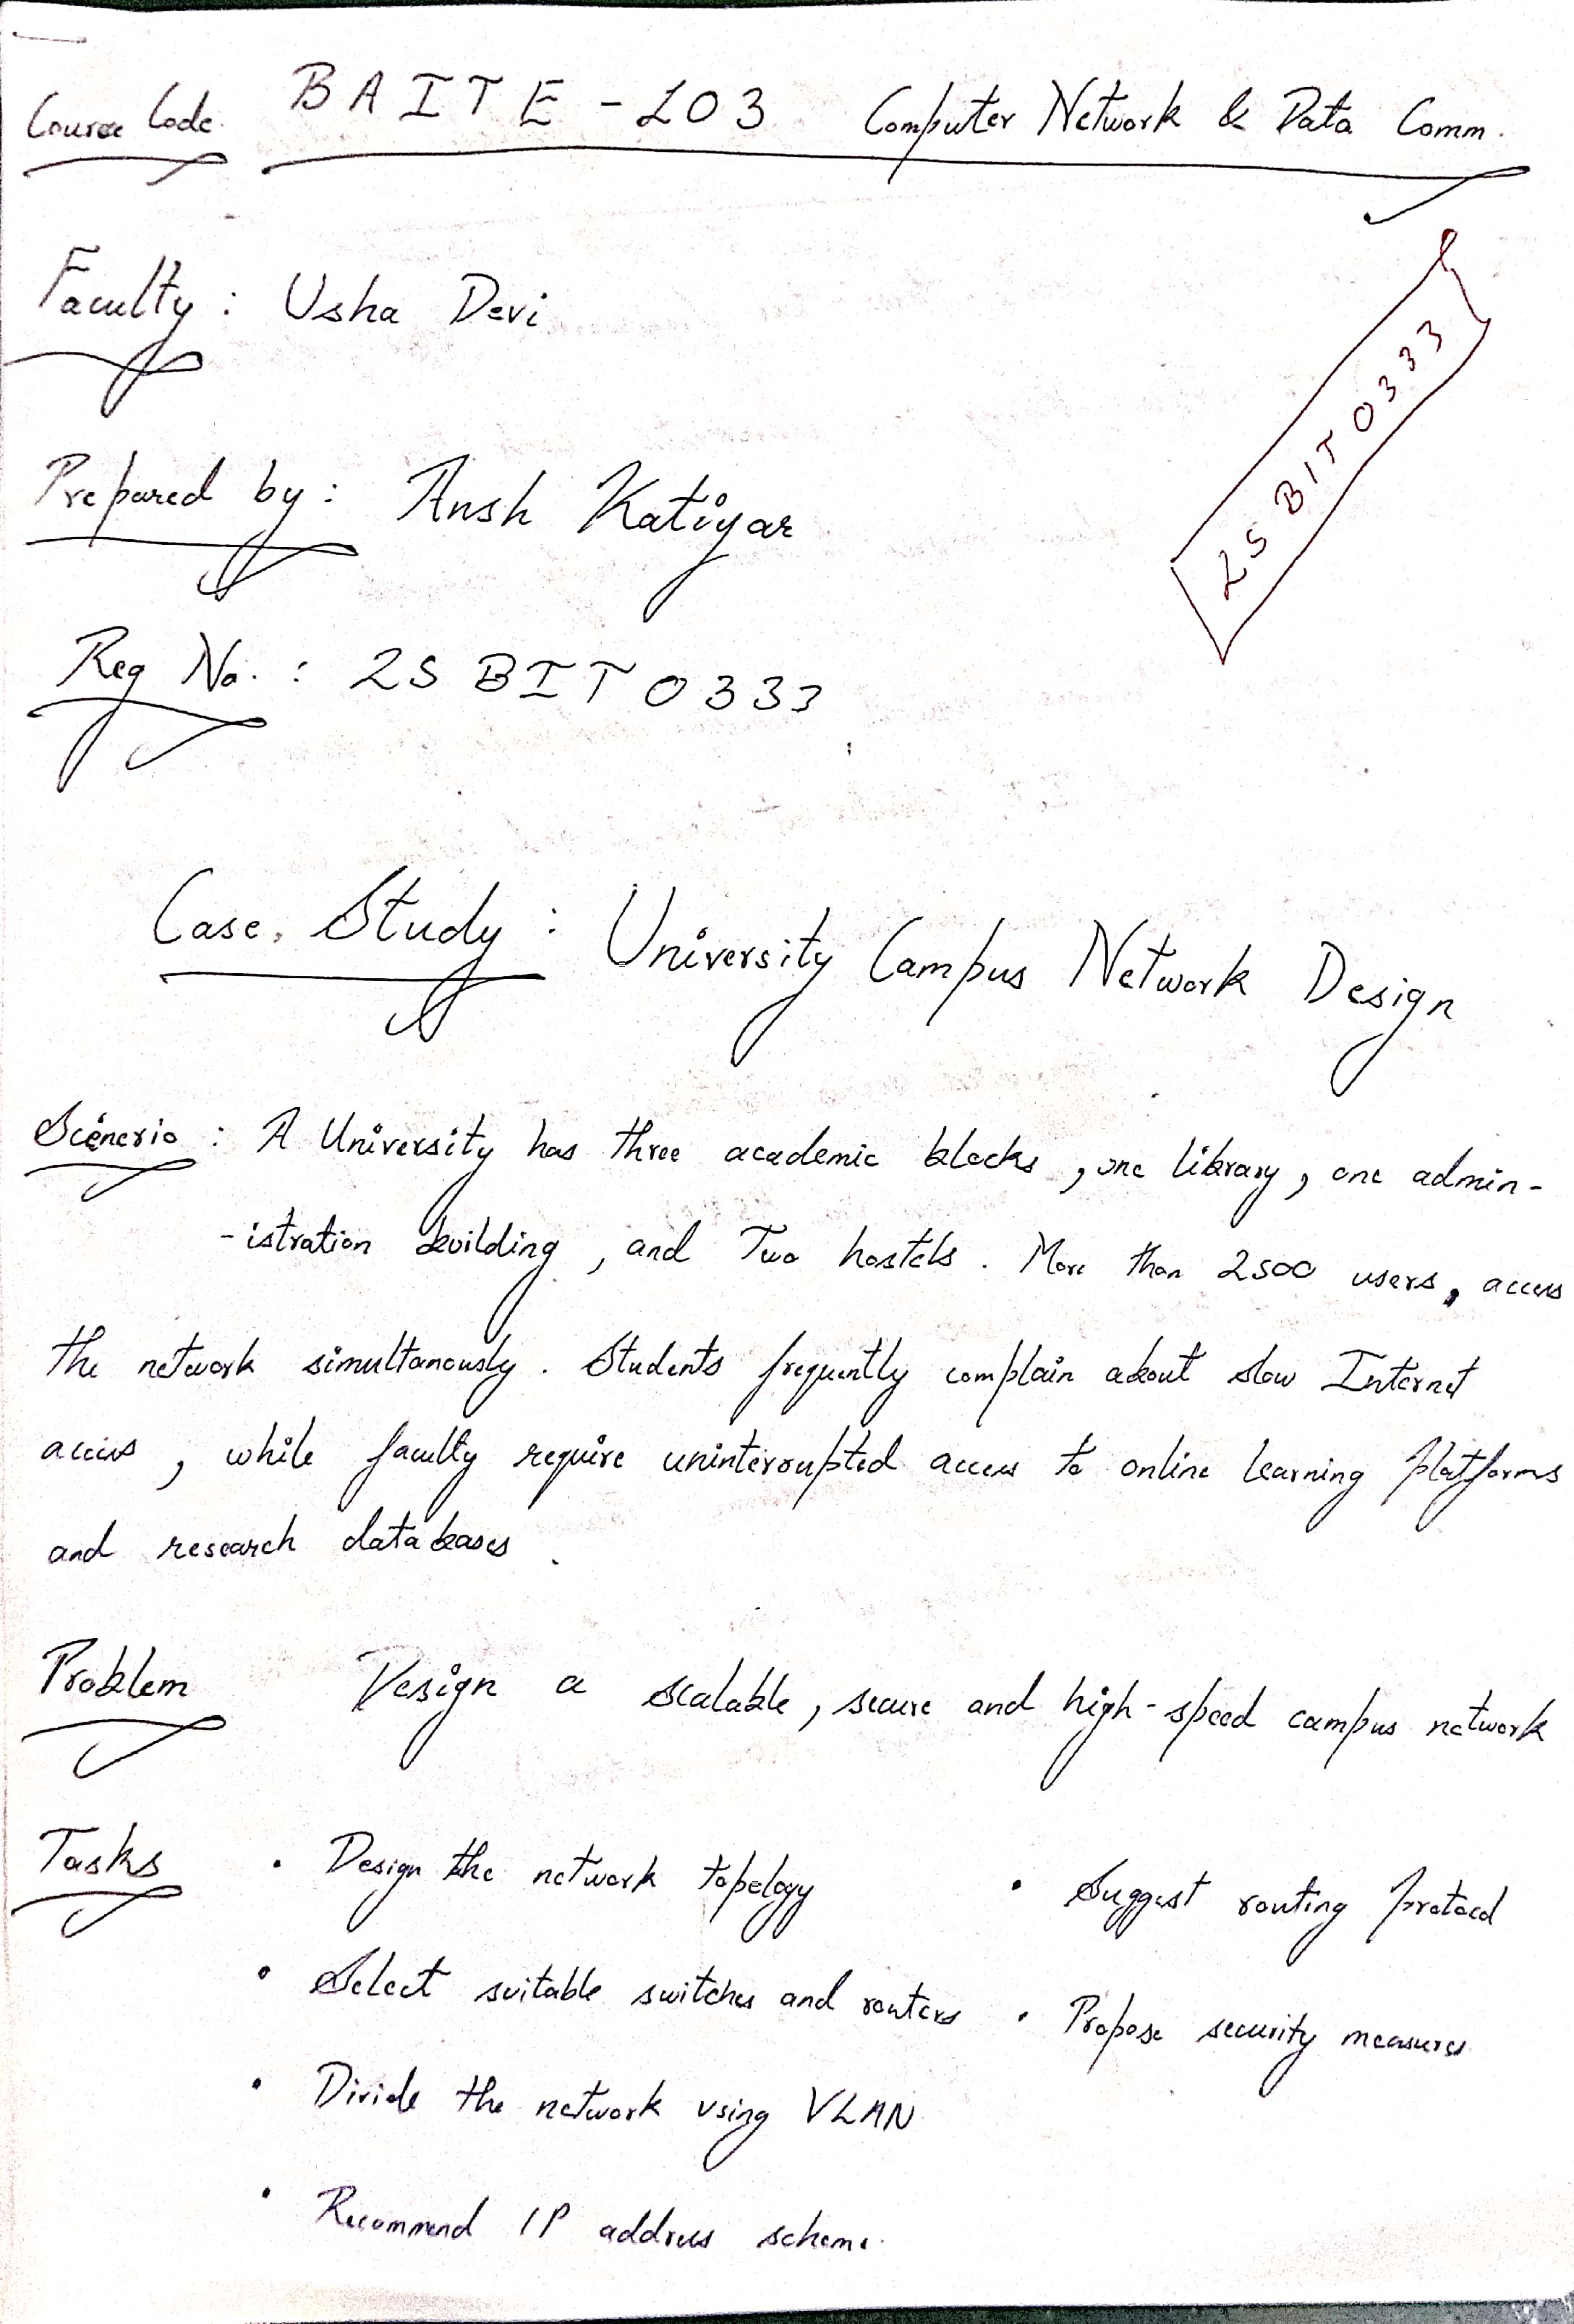 Course Code. BAITE-203 Computer Network & Data Comm.
Faculty : Usha Devi
25BIT0333
Prepared by : Ansh Katiyar
Reg No. : 25BIT0333
Case Study : University Campus Network Design
Scenerio : A University has three academic blocks, one library, one admin-
-istration building, and Two hostels. More than 2500 users, access
the network simultanously. Students frequently complain about slow Internet
access, while faculty require uninteroupted access to online learning platforms
and research databases.
Problem Design a scalable, secure and high-speed campus network
Tasks • Design the network topology • Suggest routing protocol
• Select suitable switches and routers • Propose security measures
• Divide the network using VLAN
• Recommend IP address scheme.